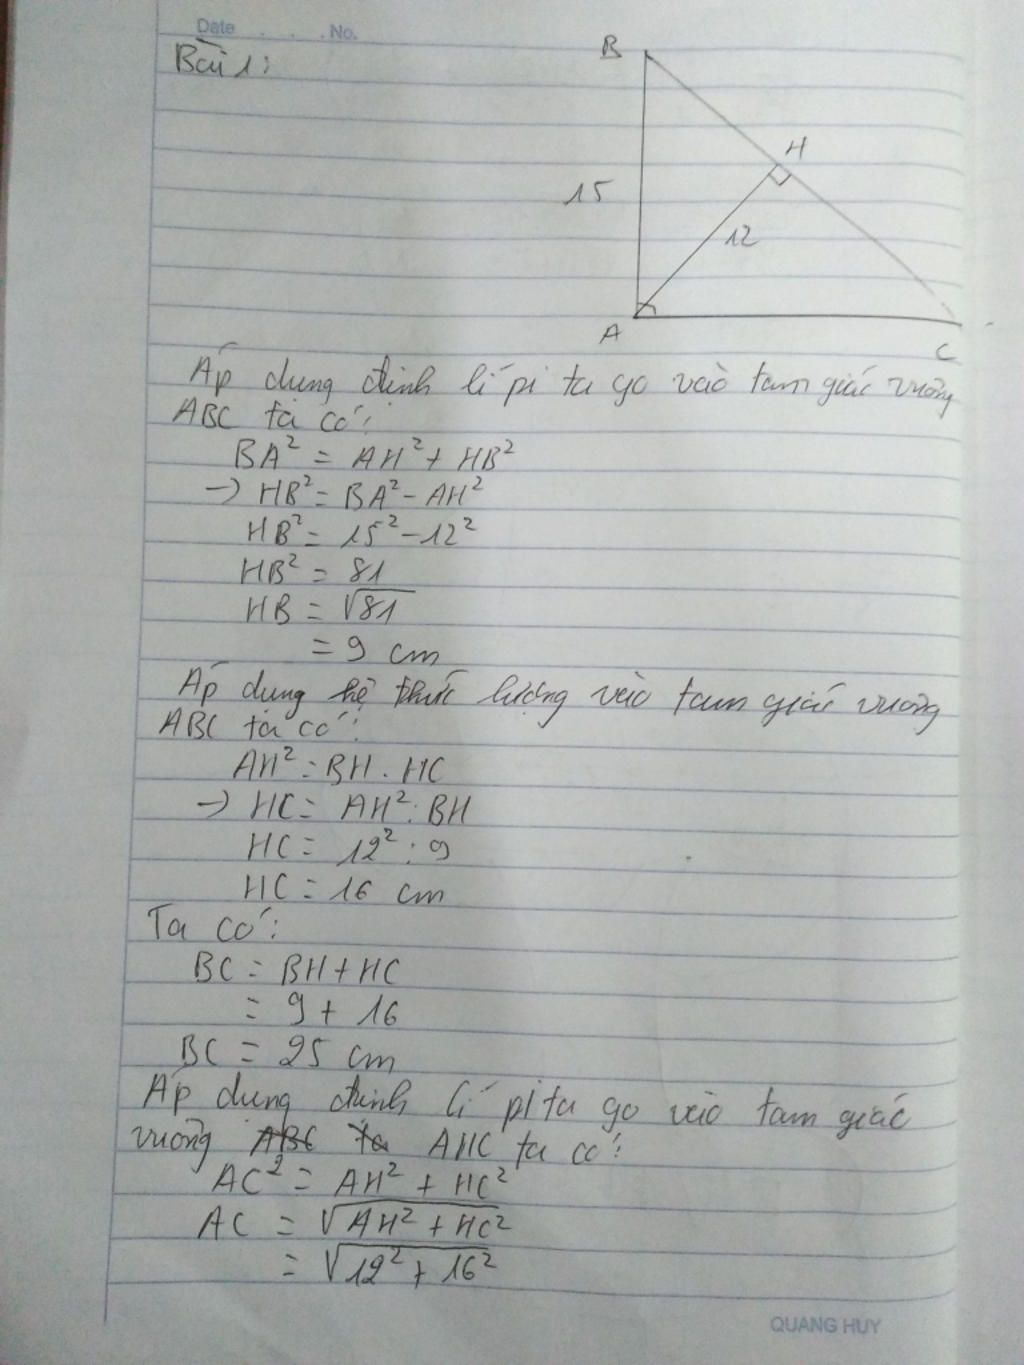 Date . . . No.
Bài 1:
B
H
15
12
A
C
Áp dụng định lí pi ta go vào tam giác vuông
ABC ta có:
BA² = AH² + HB²
→ HB² = BA² - AH²
HB² = 15² - 12²
HB² = 81
HB = √81
= 9 cm
Áp dụng hệ thức lượng vào tam giác vuông
ABC ta có:
AH² = BH . HC
→ HC = AH² : BH
HC = 12² : 9
HC = 16 cm
Ta có:
BC = BH + HC
= 9 + 16
BC = 25 cm
Áp dụng định lí pi ta go vào tam giác
vuông ABC ta AHC ta có:
AC² = AH² + HC²
AC = √AH² + HC²
= √12² + 16²
QUANG HUY